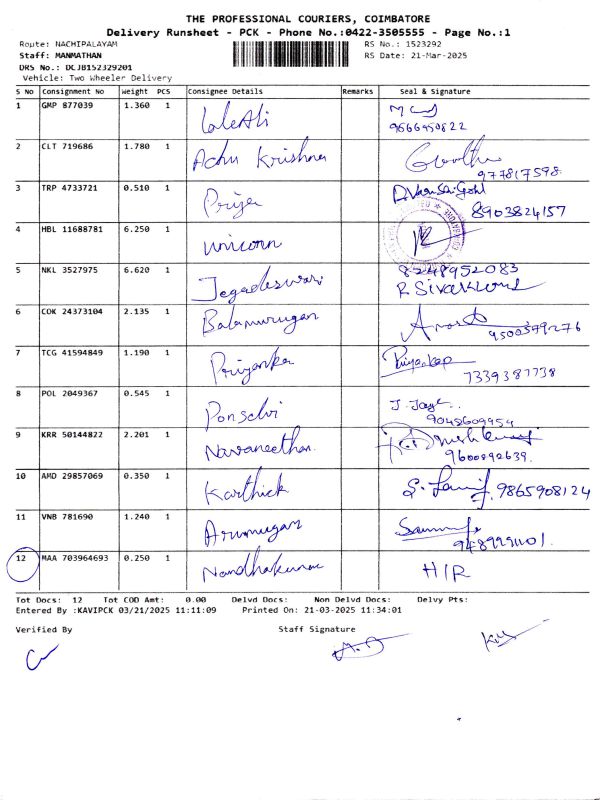 THE PROFESSIONAL COURIERS, COIMBATORE
Delivery Runsheet - PCK - Phone No.:0422-3505555 - Page No.:1
Route: NACHIPALAYAM RS No.: 1523292
Staff: MANMATHAN RS Date: 21-Mar-2025
DRS No.: DCJB152329201
Vehicle: Two Wheeler Delivery
S No Consignment No Weight PCS Consignee Details Remarks Seal & Signature
1 GMP 877039 1.360 1 LaleAli
9566950822
2 CLT 719686 1.780 1 Achu Krishna
977817598
3 TRP 4733721 0.510 1 Priya
8903824157
4 HBL 11688781 6.250 1 unicorn
5 NKL 3527975 6.620 1 Jegadeswari 8248952083
R Sivakumar
6 COK 24373104 2.135 1 Balamurugan
9500579276
7 TCG 41594849 1.190 1 Priyanka Priyanka
7339387738
8 POL 2049367 0.545 1 Ponselvi J. Jaya
9042609954
9 KRR 50144822 2.201 1 Navaneethan
9600892639
10 AMD 29857069 0.350 1 Karthick 9865908124
11 VNB 781690 1.240 1 Arumugam
9489991101
12 MAA 703964693 0.250 1 Nandhakumar H/R
Tot Docs: 12 Tot COD Amt: 0.00 Delvd Docs: Non Delvd Docs: Delvy Pts:
Entered By :KAVIPCK 03/21/2025 11:11:09 Printed On: 21-03-2025 11:34:01
Verified By Staff Signature